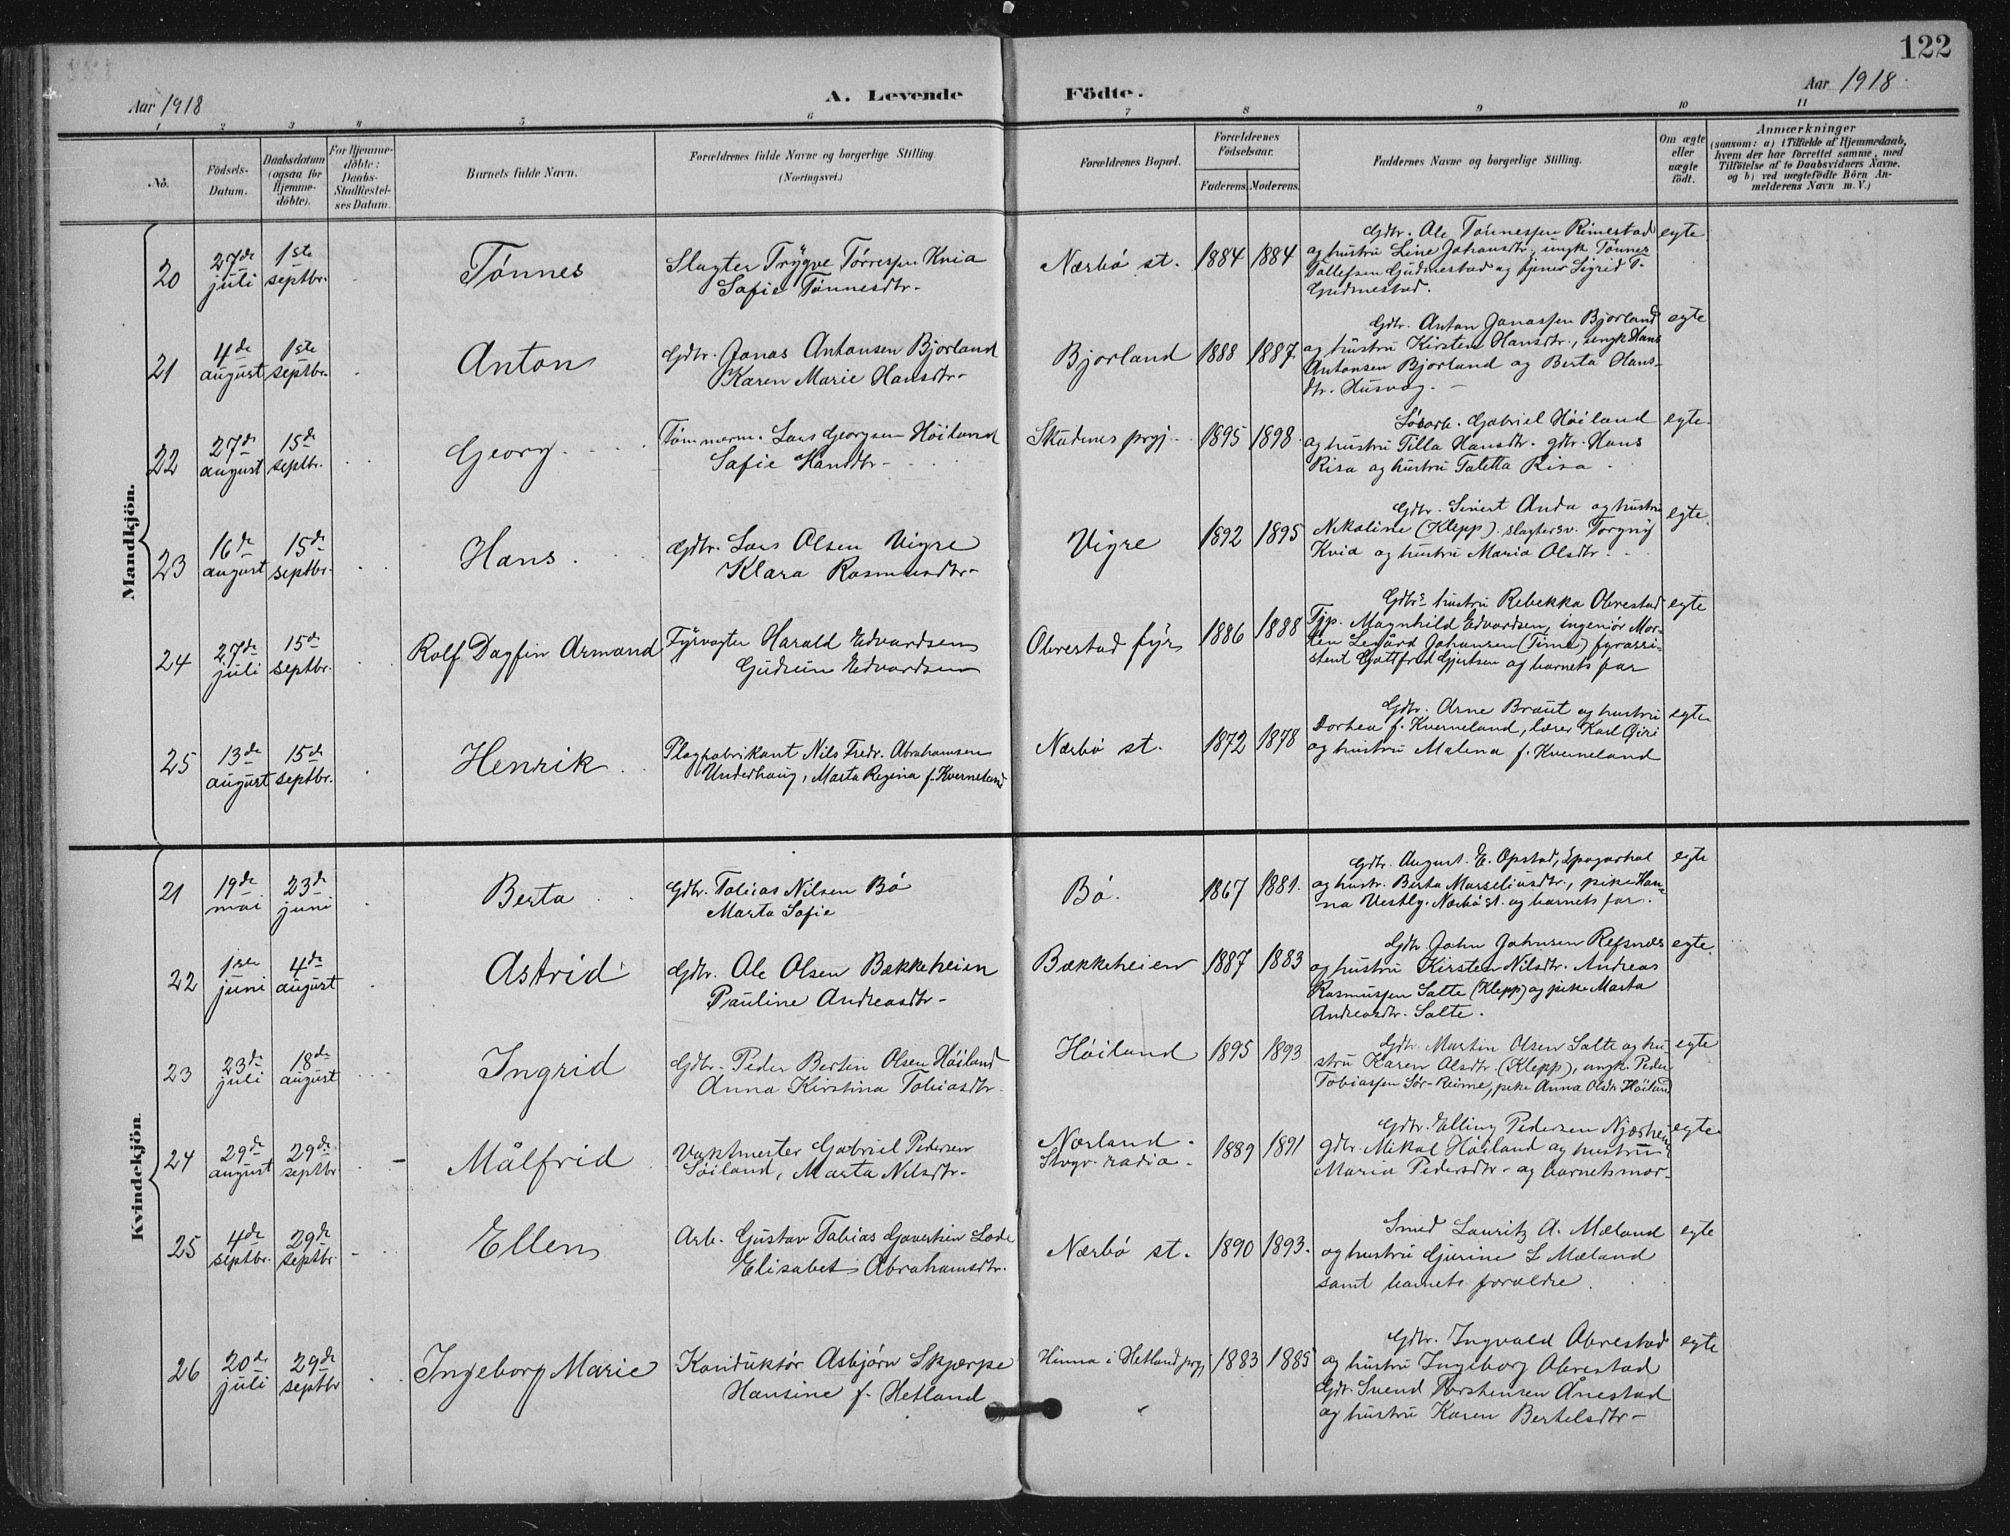 122
Aar 1918
A. Levende Födte.
Aar 1918
1 2 3 4 5 6 7 8 9 10 11
No.
Födsels-
Datum.
Daabsdatum
(ogsaa for
Hjemme-
döbte).
For Hjemme-
döbte:
Daabs-
Stadfæstel-
ses Datum.
Barnets fulde Navn.
Forældrenes fulde Navne og borgerlige Stilling.
(Næringsvei.)
Forældrenes Bopæl.
Forældrenes
Födselsaar.
Faderens. Moderens.
Faddernes Navne og borgerlige Stilling.
Om ægte
eller
uægte
födt.
Anmærkninger
(saasom: a) i Tilfælde af Hjemmedaab,
hvem der har forrettet samme, med
Tilföielse af to Daabsvidners Navne,
og b) ved uægtefödte Börn An-
melderens Navn m. V.)
Mandkjön.
20
27de
juli
1ste
septbr.
Tónnes
Slagter Trygve Tórresen Kvia
Sofie Tónnesdtr.
Nærbó st.
1884 1884
Gdbr. Ole Tónnessen Rimestad
og hustru Line Johansdtr., ungk. Tónnes
Tollefsen Gudmestad og tjener Sigrid T.
Gudmestad.
egte
21
4de
august
1ste
septbr.
Anton
Gdbr. Jonas Antonsen Bjorland
Karen Marie Hansdtr.
Bjorland
1888 1887.
Gdbr. Anton Jonassen Bjorland
og hustru Kirsten Hansdtr., ungk. Hans
Antonsen Bjorland og Berta Hans-
dtr. Husvæg.
egte
22
27de
august
15de
septbr.
Georg
Tómmerm. Lars Georgsen Hóiland
Sofie Hansdtr.
Skudenes prgj.
1895 1898.
Gabriel Hóiland
og hustru Tilla Hansdtr. gdbr. Hans
Risa og hustru Taletta Risa.
egte
23
16de
august
15de
septbr.
Hans.
Gdbr. Lars Olsen Vigre
Klara Rasmusdtr.
Vigre
1892 1895
Gdbr. Sivert Anda og hustru
Nikoline (Klepp). slagtersv. Torgny
Kvia og hustru Maria Olsdtr.
egte.
24
27de
juli
15de
septbr.
Rolf Dagfin Armand
Fyrvogter Harald Edvardsen
Gudrun Edvardsen
Obrestad fyr
1886 1888
Gdbrs hustru Rebekka Obrestad
Tjp. Magnhild Edvardsen, ingeniór Mor-
ten Legård Johansen (Time) fyrassi-
stent Gottfred Gjertsen og barnets far
egte
25
13de
august
15de
septbr.
Henrik
Plogfabrikant Nils Fredr. Abrahamsen
Underhaug, Marta Regina f. Kverneland
Nærbó st.
1872 1878
Gdbr. Arne Braut og hustru
Dorthea f. Kverneland, lærer Karl
og hustru Malena f. Kverneland
egte
Kvindekjön.
21
19de
mai
23de
juni
Berta
Gdbr. Tobias Nilsen Bó
Marta Sofie
Bó.
1867 1881.
Gdbr. August E. Opstad,
og hustr. Berta Marseliusdtr., pike Han-
na Vestly. Nærbó st. og barnets far.
egte
22
1ste
juni
4de
august
Astrid
Gdbr. Ole Olsen Bækkeheien
Pauline Andreasdtr.
Bækkeheien
1887 1883
Gdbr. John Johnsen Refsnes
og hustru Kirsten Nilsdtr. Andreas
Rasmussen Salte (Klepp) og pike Marta
Andreasdtr. Salte.
egte.
23
23de
juli
18de
august
Ingrid
Gdbr. Peder Bertin Olsen Hóiland
Anna Kirstina Tobiasdtr.
Hóiland
1895 1893
Gdbr. Martin Olsen Salte og hu-
stru Karen Olsdtr. (Klepp), ungk. Peder
Tobiassen Sór-Reime, pike Anna Olsdtr Hóiland
egte
24
29de
august
29de
septbr.
Målfrid
Vaktmester Gabriel Pedersen
Sóiland, Marta Nilsdtr.
Nærland
Stvgr. radio.
1889 1891
Gdbr. Elling Pedersen Njærheim
gdbr. Mikal Hóiland og hustru
Maria Pedersdtr. og barnets mor.
egte
25
4de
septbr.
29de
septbr.
Ellen
Arb. Gustav Tobias Lode
Elisabet Abrahamsdtr.
Nærbó st.
1890 1893.
Smed Lauritz A. Mæland
og hustru Gjurine L Mæland
samt barnets forældre.
egte
26
20de
juli
29de
septbr
Ingeborg Marie
Konduktór Asbjórn Skjærpe
Hansine f. Hetland
Hinna i Hetland prgj
1883 1885
Gdbr. Ingvald Obrestad
og hustru Ingeborg Obrestad
Gdbr. Svend Torstensen Ånestad
og hustru Karen Bertelsdtr.
egte